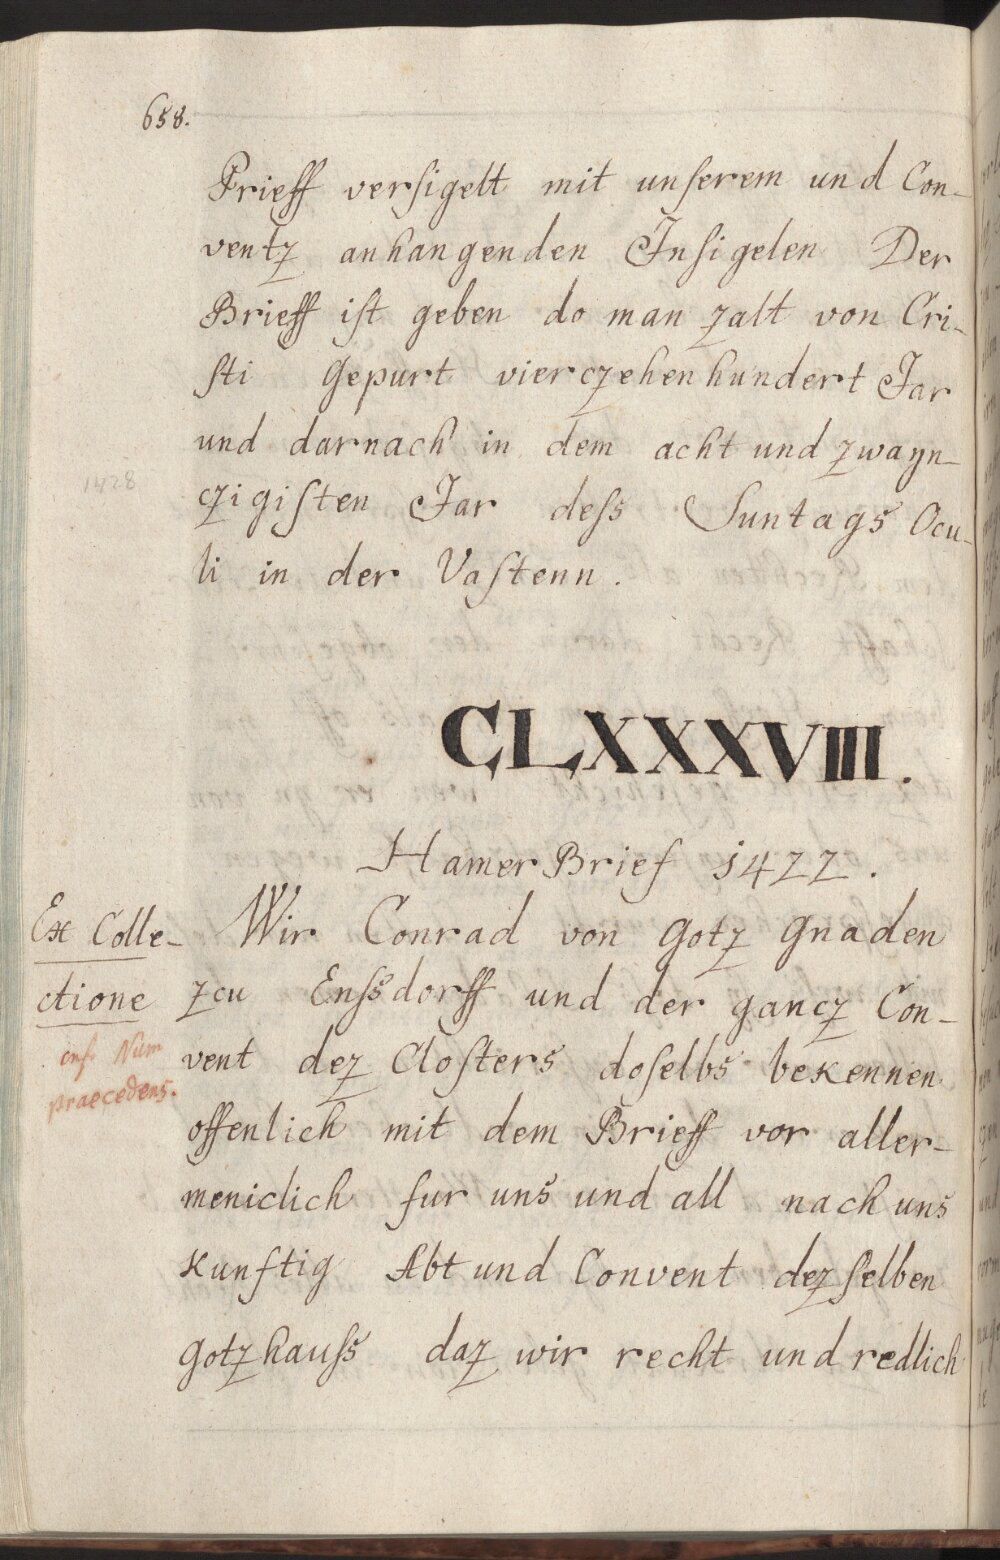 658.
Prieff versigelt mit unserem und Con-
ventz anhangenden Insigelen Der
Brieff ist geben do man zalt von Cri-
sti Gepurt vierczehenhundert Jar
und darnach in dem acht und zwayn-
1428
czigisten Jar dess Suntags Ocu-
li in der Vastenn.
CLXXXVIII.
Hamer Brief 1422.
Ex Colle-
ctione
Num
praecedens.
Wir Conrad von Gotz Gnaden
zcu Enssdorff und der gancz Con-
vent dez Closters doselbs bekennen
offenlich mit dem Brieff vor aller-
meniclich fur uns und all nach uns
kunftig Abt und Convent dez selben
gotzhauss daz wir recht und redlich